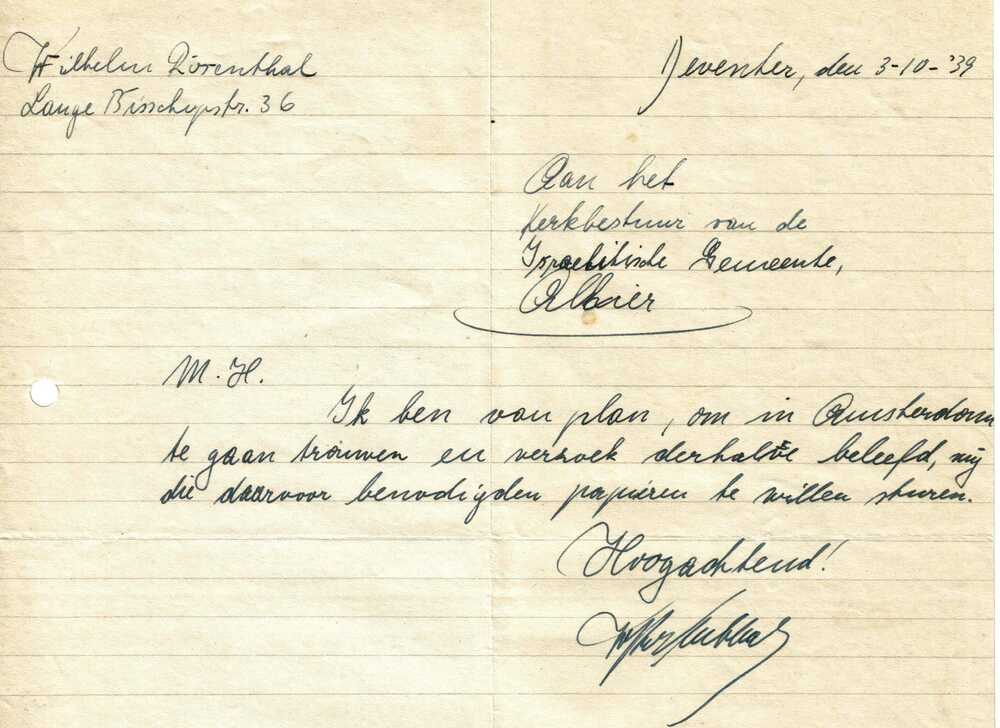 Wilhelm Rosenthal
Lange Bisschopstr. 36
Deventer, den 3-10-'39
Aan het
Kerkbestuur van de
Israelitische Gemeente,
Alhier
M. H.
Ik ben van plan, om in Amsterdam
te gaan trouwen en verzoek derhalve beleefd, mij
die daarvoor benodigden papieren te willen sturen.
Hoogachtend!